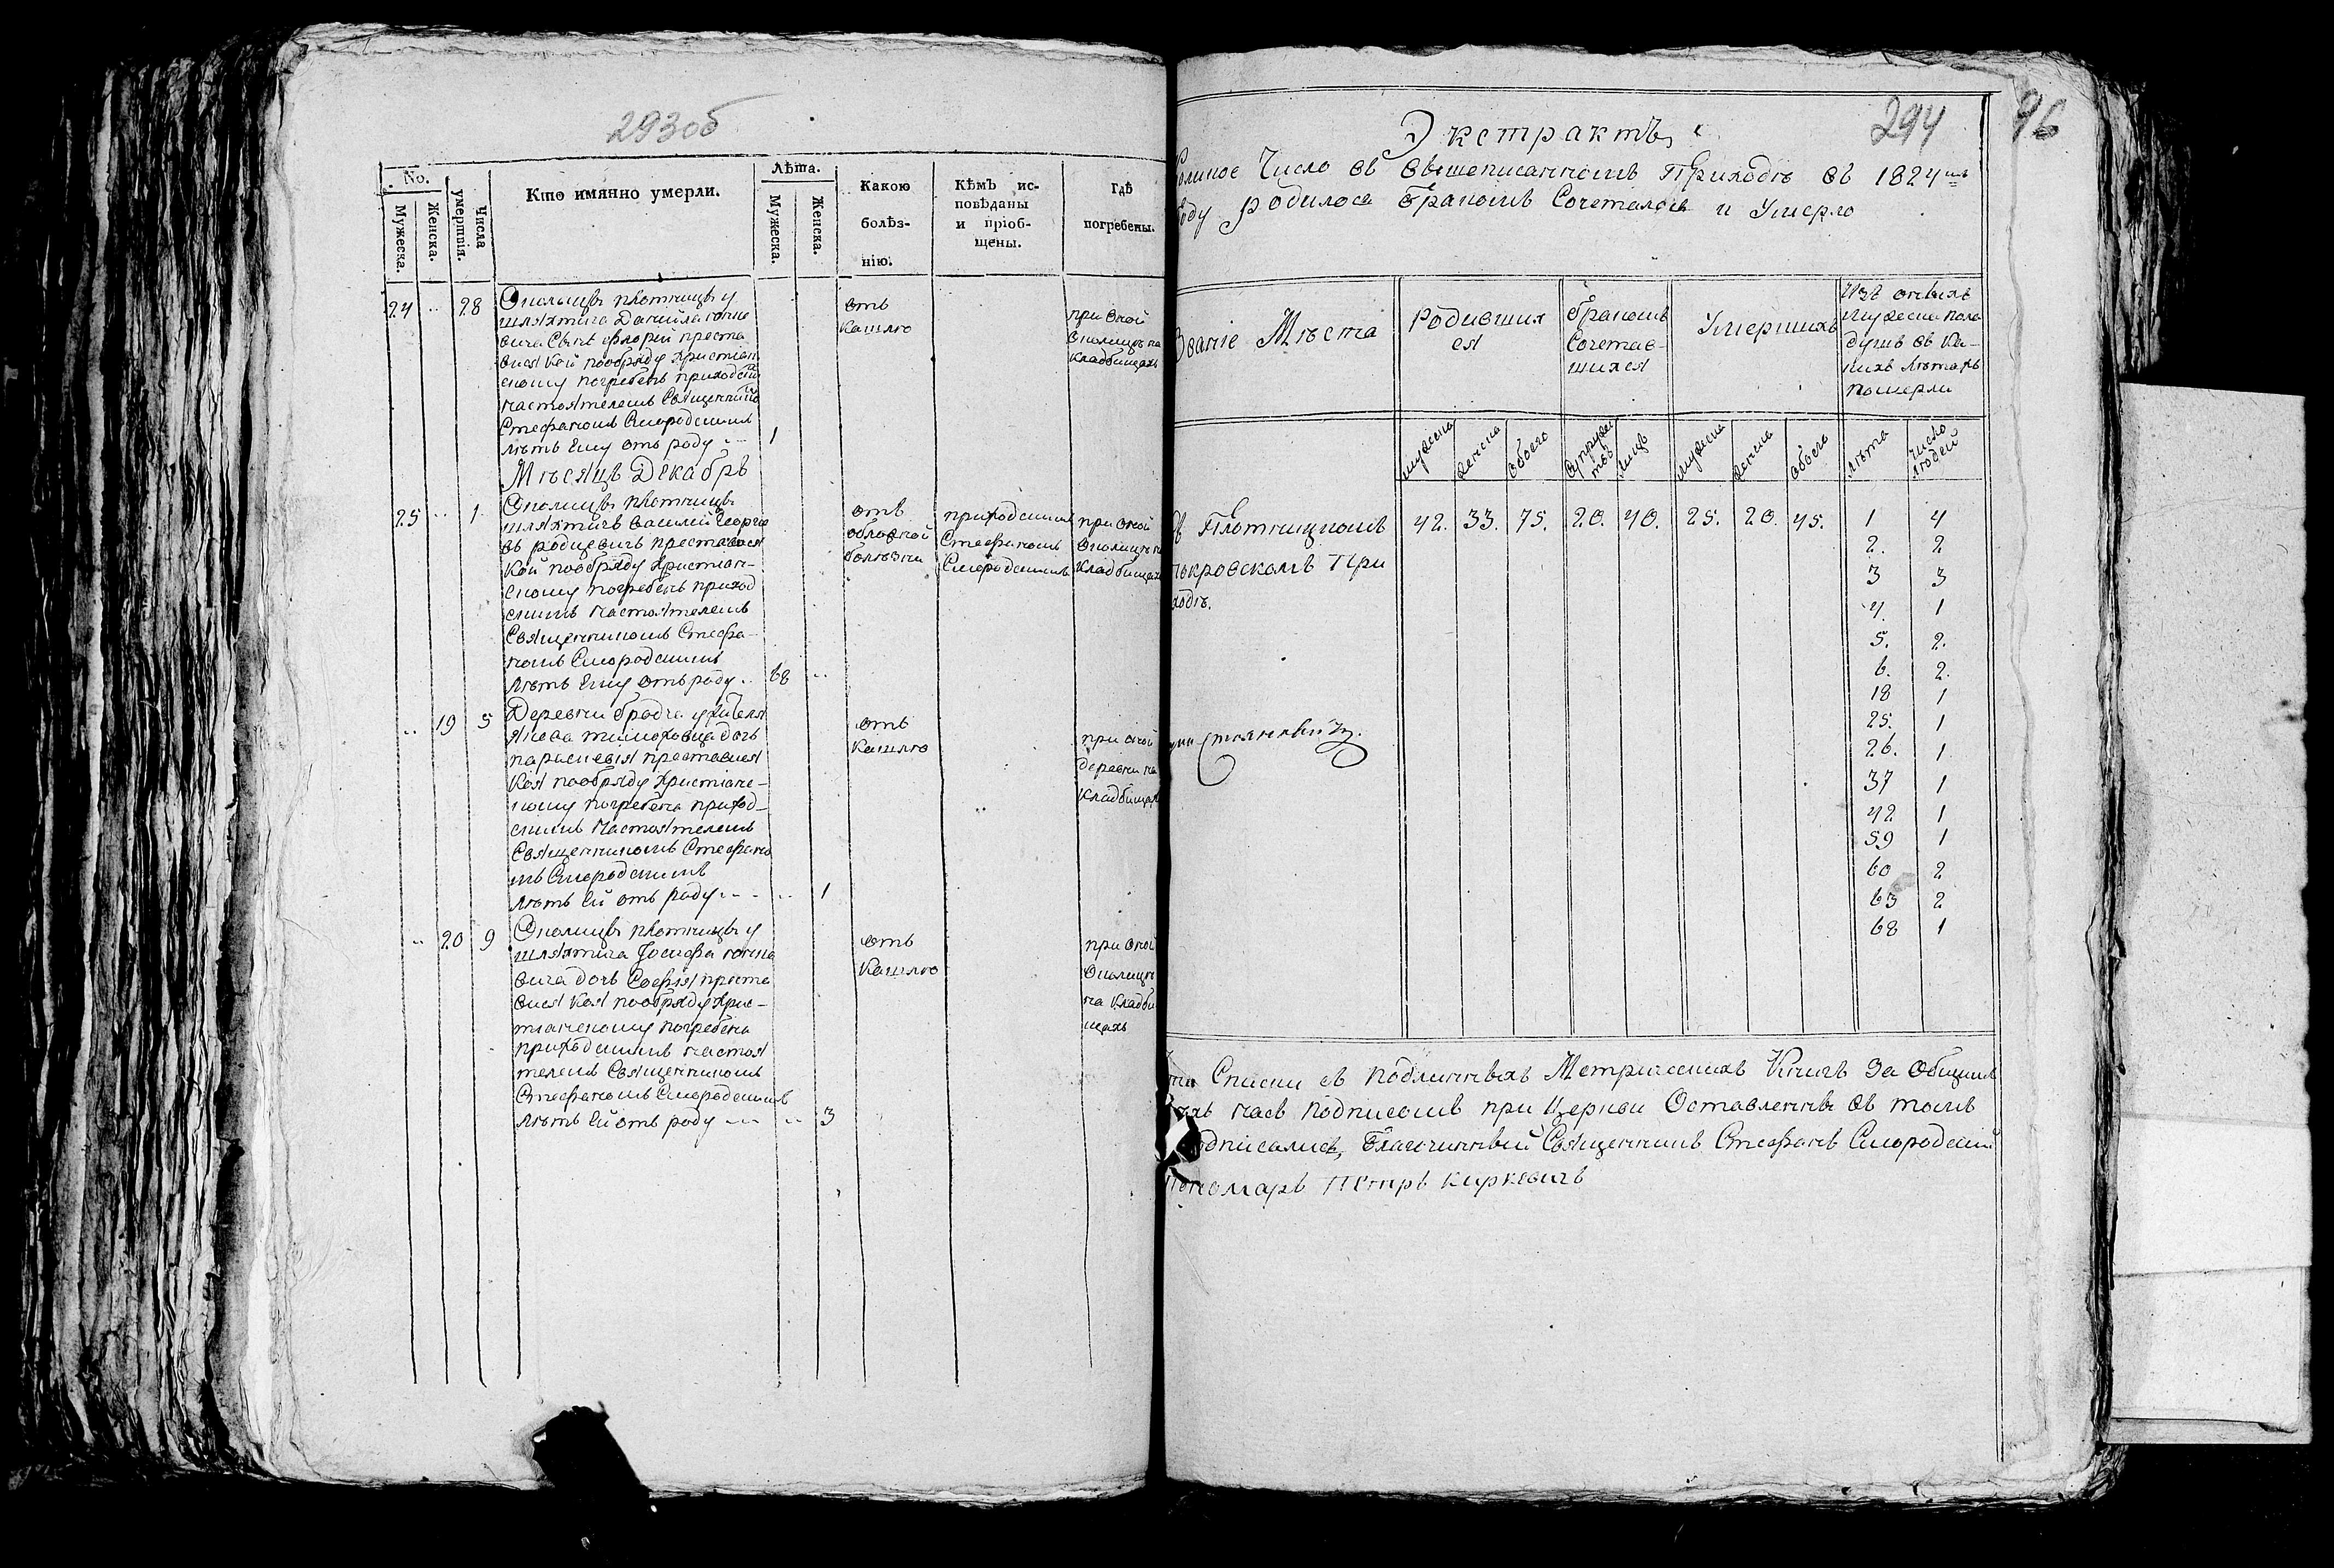 293об
No.
Мужеска.
Женска.
Числа умершія.
Кто имянно умерли.
Лѣта.
Мужеска.
Женска.
Какою
болѣз-
нію.
Кѣмъ ис-
повѣданы
и пріоб-
щены.
Гдѣ
погребены.
24 .. 28
Околицы плотницы у
шляхтича Данійла
вича Сынъ флорій преста
вися кой пообряду христіан
скому погребенъ приходски
настоятелемъ Священнико
Стефаномъ Смородскимъ
лѣтъ Ему отъ роду .. 1
отъ
Кашлю
при оной
околицѣ на
кладбищахъ
Мѣсяцъ Декабрь
25 .. 1
Околицы плотницы
шляхтичъ василій Георгіе
въ родцевичъ преставися
кой пообряду христіан-
скому погребенъ приход
скимъ настоятелемъ
Священникомъ Стефа-
номъ Смородскимъ
лѣтъ Ему отъ роду .. 68 ..
отъ
обложной
болѣзни
приходскимъ
Стефаномъ
Смородскимъ
при оной
околицѣ на
кладбищах
.. 19 5
Деревни бродча у жителя
тимоховца дочь
параскевія преставися
коя пообряду христіанс-
кому погребена приход-
скимъ настоятелемъ
Священникомъ Стефано
мъ Смородскимъ
лѣтъ Ей отъ роду .. .. 1
отъ
Кашлю
при оной
деревни на
кладбищах
.. 20 9
Околицы плотницы у
шляхтича Іосифа
вича дочь Софія преста
вися коя пообряду хрис-
тіанскому погребена
приходскимъ настоя
телемъ Священникомъ
Стефаномъ Смородскимъ
лѣтъ Ей отъ роду .. .. 3
отъ
Кашлю
при оной
околицѣ
на кладби
щахъ
294 96
Экстрактъ
Число въ вышеписанномъ Приходѣ въ 1824мъ
году родилося бракомъ Сочеталося и Умерло
Званіе Мѣста
Родивших
ся
бракомъ
Сочетав-
шихся
Умершихъ
Изъ оныхъ
мужеска пола
душъ въ ка-
кихъ лѣтахъ
померли
мужеска
женска
обоего
супружес
твъ
лицъ
мужеска
женска
обоего
лѣта
число
людей
въ Плотницкомъ
покровскомъ При
ходѣ.
42. 33. 75. 20. 40. 25. 20. 45.
1 4
2. 2
3 3
4. 1
5. 2.
6. 2.
18 1
25. 1
26. 1
37 1
42 1
59 1
60 2
63 2
68 1
Списки съ подлинныхъ Метрическихъ Книгъ За общимъ
насъ подписомъ при Церкви Оставленны въ томъ
подписалися, благочинный Священникъ Стефанъ Смородскій
Пономарь Петръ Киркевичъ